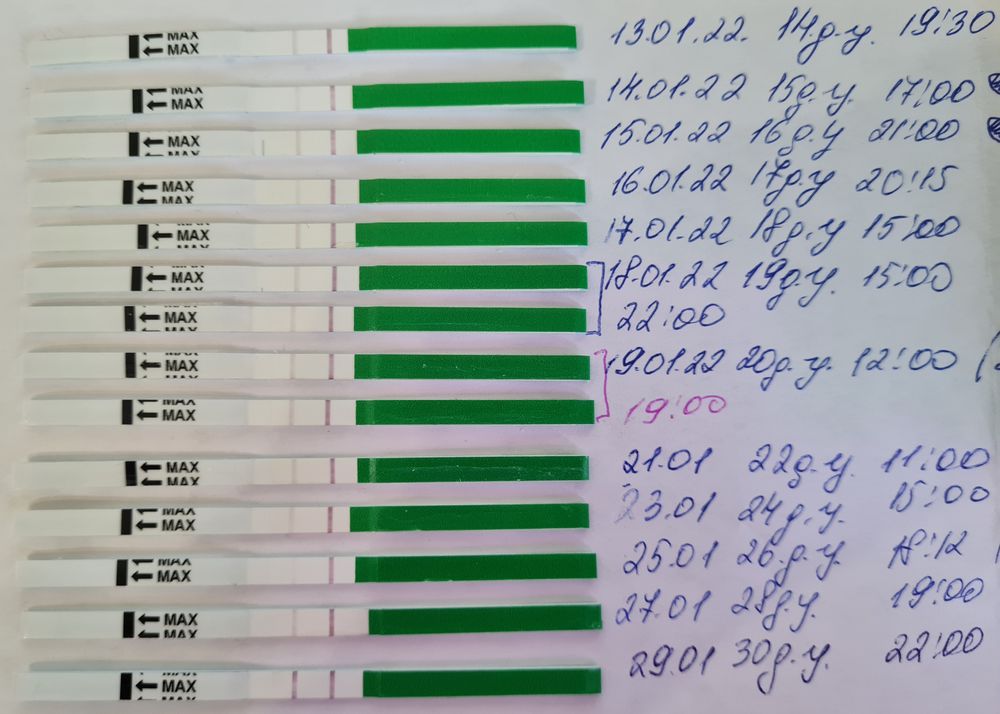 MAX MAX 13.01.22. 14д.ц. 19:30
MAX MAX 14.01.22 15д.ц. 17:00
MAX MAX 15.01.22 16д.ц 21:00
MAX MAX 16.01.22 17д.ц 20:15
MAX MAX 17.01.22 18д.ц 15:00
MAX MAX 18.01.22 19д.ц. 15:00
MAX MAX 22:00
MAX MAX 19.01.22 20д.ц. 12:00
MAX MAX 19:00
MAX MAX 21.01 22д.ц. 11:00
MAX MAX 23.01 24д.ц. 15:00
MAX MAX 25.01 26д.ц. 18:12
MAX MAX 27.01 28д.ц. 19:00
MAX MAX 29.01 30д.ц. 22:00